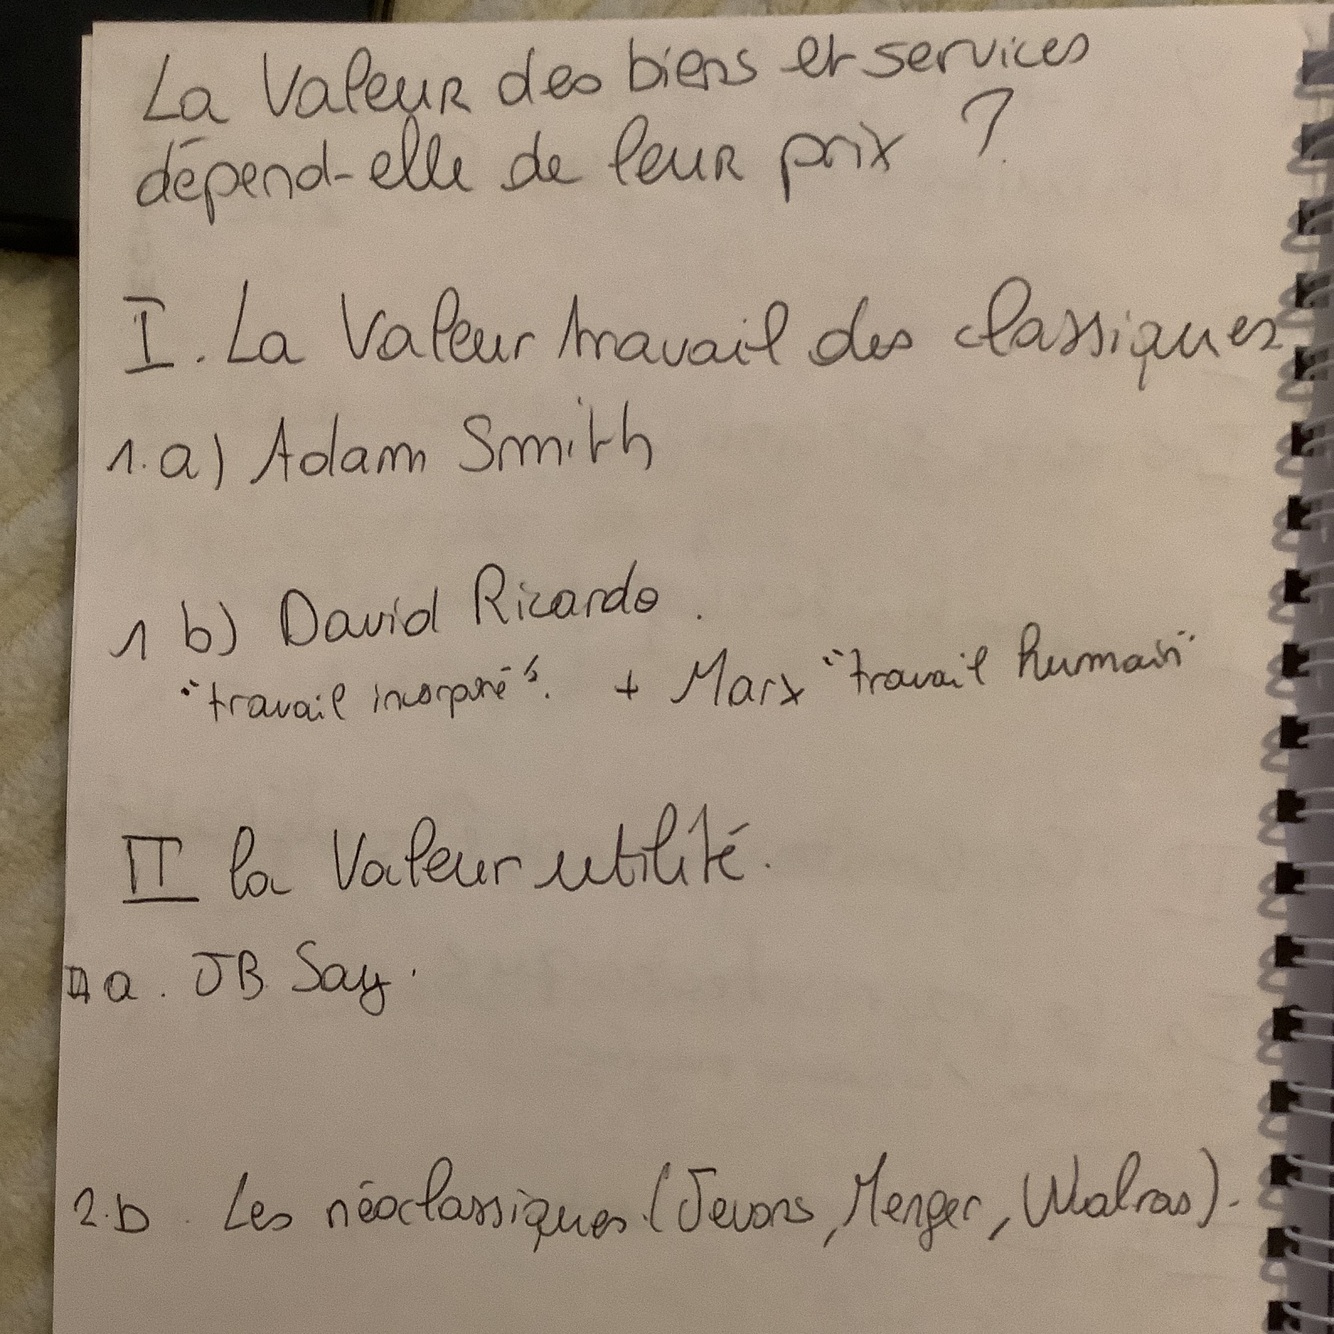 La Valeur des biens et services
dépend-elle de leur prix ?
I. La Valeur travail des classiques
1.a) Adam Smith
1 b) David Ricardo.
"travail incorporé". + Marx "travail humain"
II la Valeur utilité.
a. JB Say.
2.b. Les néoclassiques (Jevons, Menger, Walras).